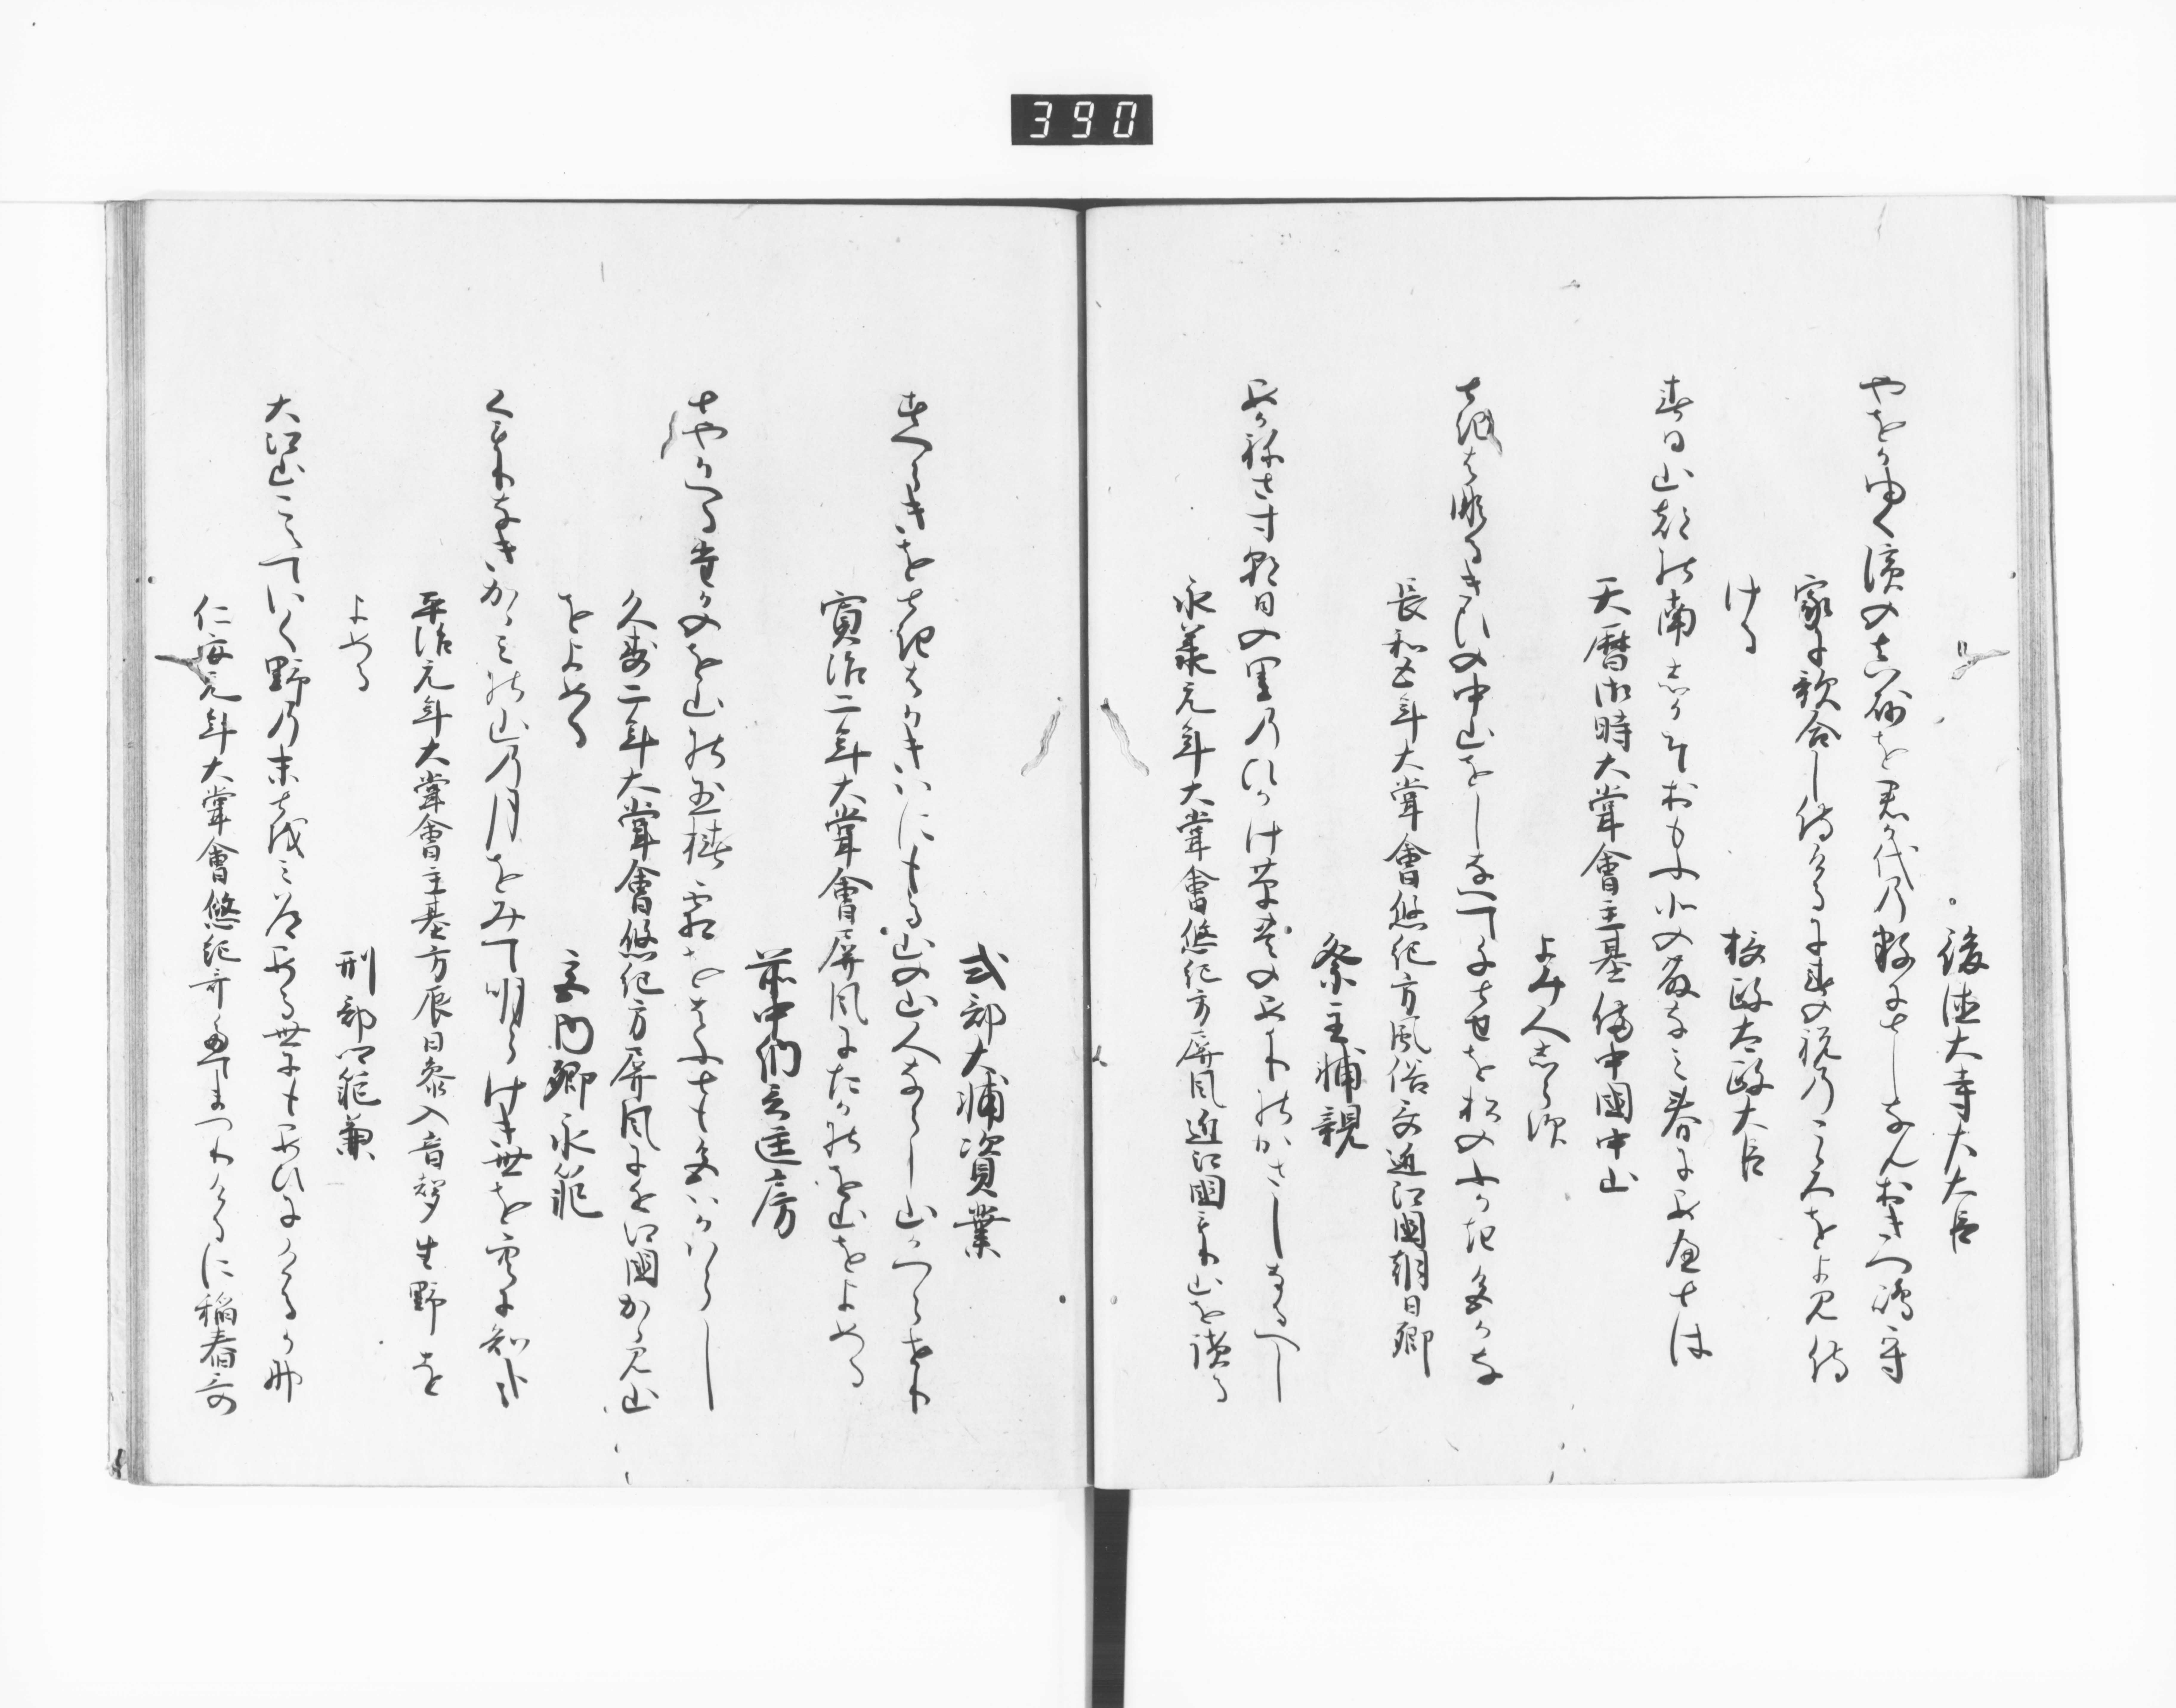 390
後徳大寺大大臣
やをかゆく濱の真砂を君か代の数にせしなんおきつ嶋守
家に歌合し侍けるに春の祝のこゝろをよみ侍
ける
摂政太政大臣
春日山都の南しかそおもふ北の藤なみ春にあへとは
天暦御時大嘗會主基備中國中山
よみ人しらす
ときはなるきひの中山をしなへてちとせを松のふかき色かな
長和五年大嘗會悠紀方風俗哥近江國朝日郷
祭主輔親
あかねさす朝日の里の日かけ草豊のあかりのかさしなるへし
永承元年大嘗會悠紀方屏風近江國もり山を讀る
式部大輔資業
すへらきをときはかきはにもる山の山人ならし山かつらせり
寛治二年大嘗會屏風にたかのを山をよめる
前中納言匡房
とやかへるたかのを山の玉椿霜をはふとも色はかはらし
久壽二年大嘗會悠紀方屏風に近江國かゝみ山
をよめる
宮内卿永範
くもりなきかゝみの山の月をみて明らけき世を空に知哉
平治元年大嘗會主基方辰日参入音聲生野を
よめる
刑部卿範兼
大江山こえていく野の末とをみ道ある世にもあひにけるか那
仁安元年大嘗會悠紀哥たてまつりけるに稲舂哥